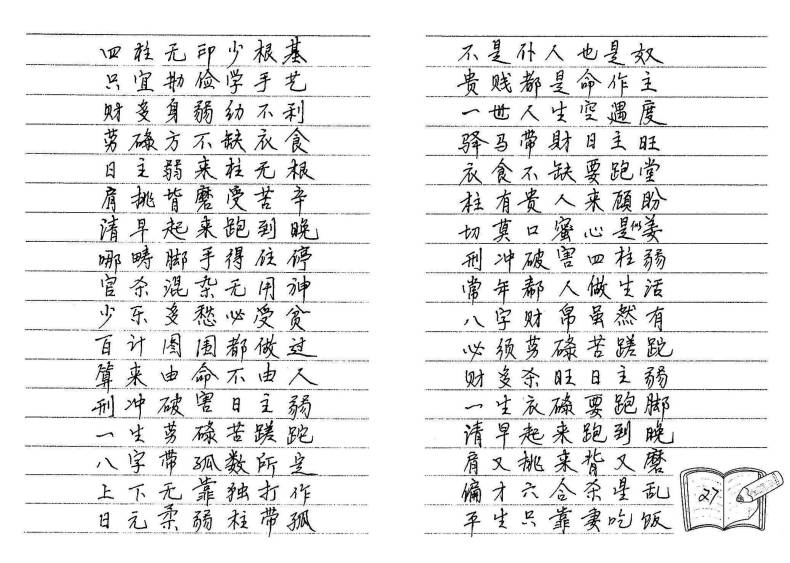 四柱无印少根基
只宜勤俭学手艺
财多身弱幼不利
劳碌方不缺衣食
日主弱来柱无根
肩挑背磨受苦辛
清早起来跑到晚
哪畴脚手得住停
官杀混杂无用神
少乐多愁必受贫
百计图国都做过
算来由命不由人
刑冲破害日主弱
一生劳碌苦蹉跎
八字带孤数所定
上下无靠独打作
日元柔弱柱带孤
不是仆人也是奴
贵贱都是命作主
一世人生空遇度
驿马带财日主旺
衣食不缺要跑堂
柱有贵人来顾盼
切莫口蜜心是似姜
刑冲破害四柱弱
常年都人做生活
八字财帛虽然有
必须劳碌苦蹉跎
财多杀旺日主弱
一生衣碌要跑脚
清早起来跑到晚
肩又挑来背又磨
偏才六合杀星乱
平生只靠妻吃饭
27